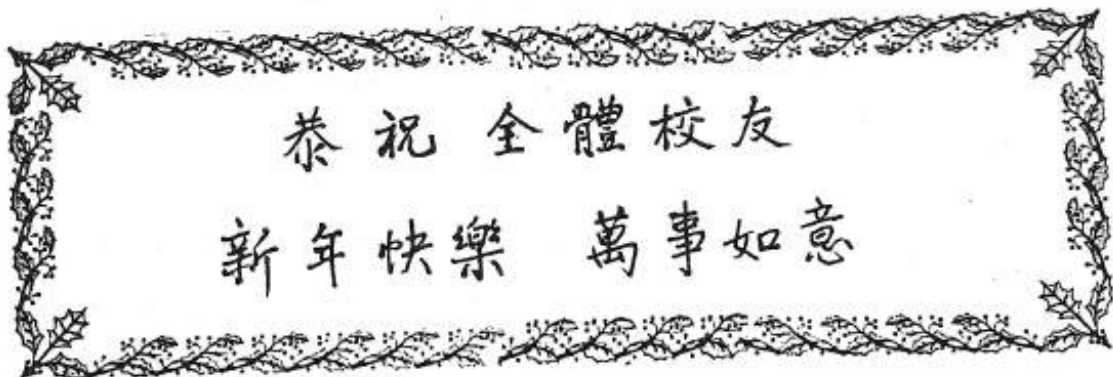 恭祝 全體校友
新年快樂 萬事如意